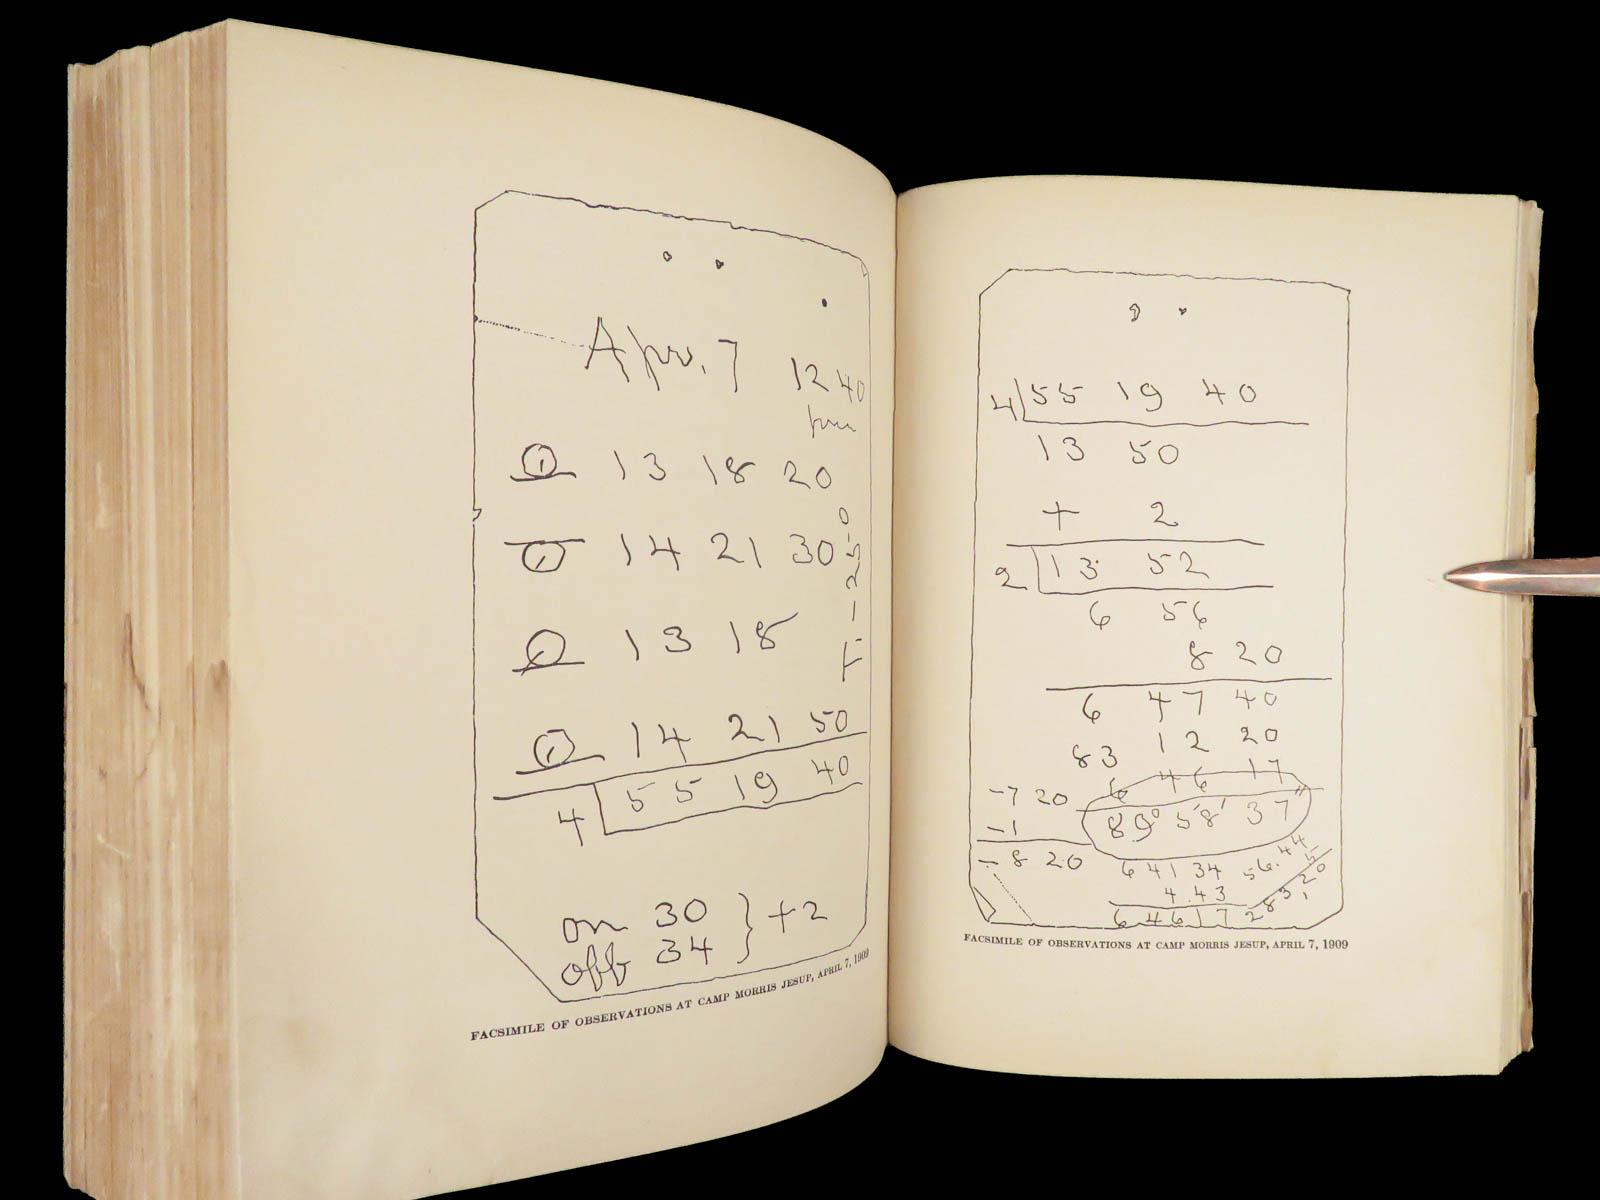 Apr. 7
12 40
pm
13 18 20
14 21 30
13 18
14 21 50
4 55 19 40
T. -25-0
on 30
off 34 } +2
FACSIMILE OF OBSERVATIONS AT CAMP MORRIS JESUP, APRIL 7, 1909
4 55 19 40
13 50
+ 2
2 13 52
6 56
8 20
6 47 40
83 12 20
6 46 17
-7 20
89° 58' 37"
-1
-8 20
6 41 34
56.44
5
4.43
283,20
6 46 17
FACSIMILE OF OBSERVATIONS AT CAMP MORRIS JESUP, APRIL 7, 1909